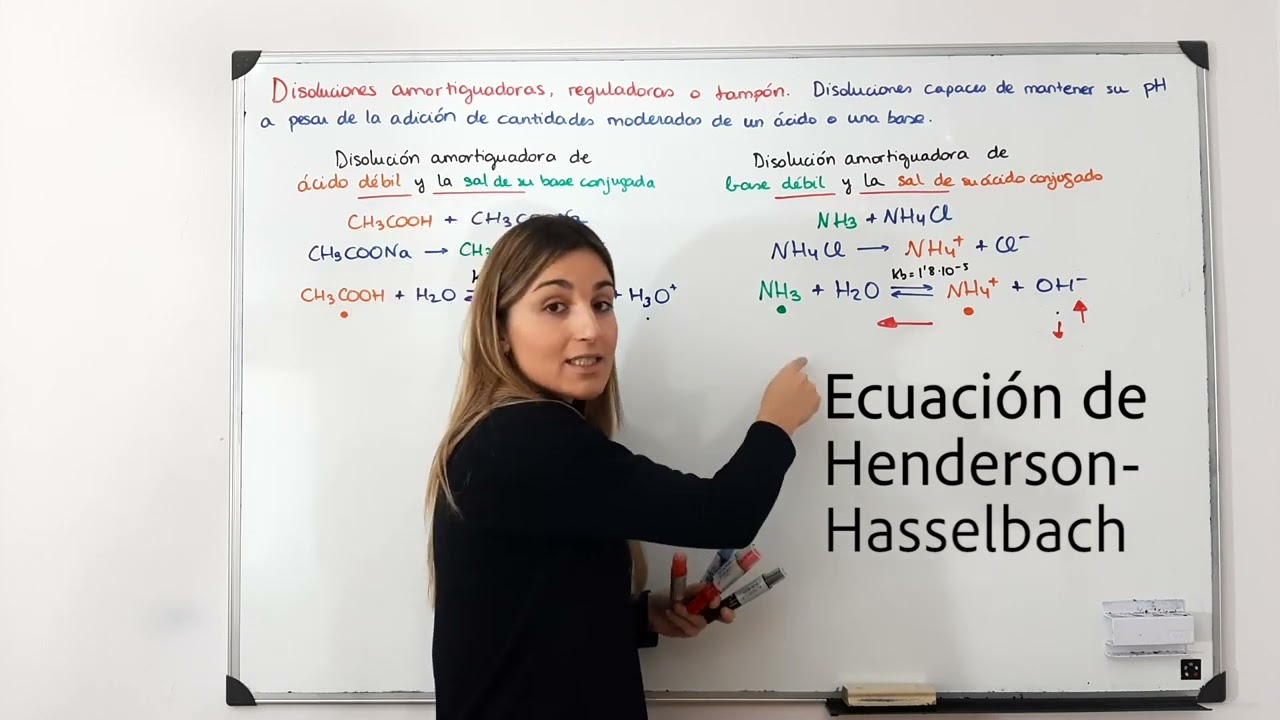 Disoluciones amortiguadoras, reguladoras o tampón. Disoluciones capaces de mantener su pH
a pesar de la adición de cantidades moderadas de un ácido o una base.
Disolución amortiguadora de
ácido débil y la sal de su base conjugada
CH3COOH + CH3COONa
CH3COONa → CH3
CH3COOH + H2O + H3O⁺
Disolución amortiguadora de
base débil y la sal de su ácido conjugado
NH3 + NH4Cl
NH4Cl → NH4⁺ + Cl⁻
Kb = 1'8·10⁻⁵
NH3 + H2O ⇌ NH4⁺ + OH⁻
Ecuación de
Henderson-
Hasselbach